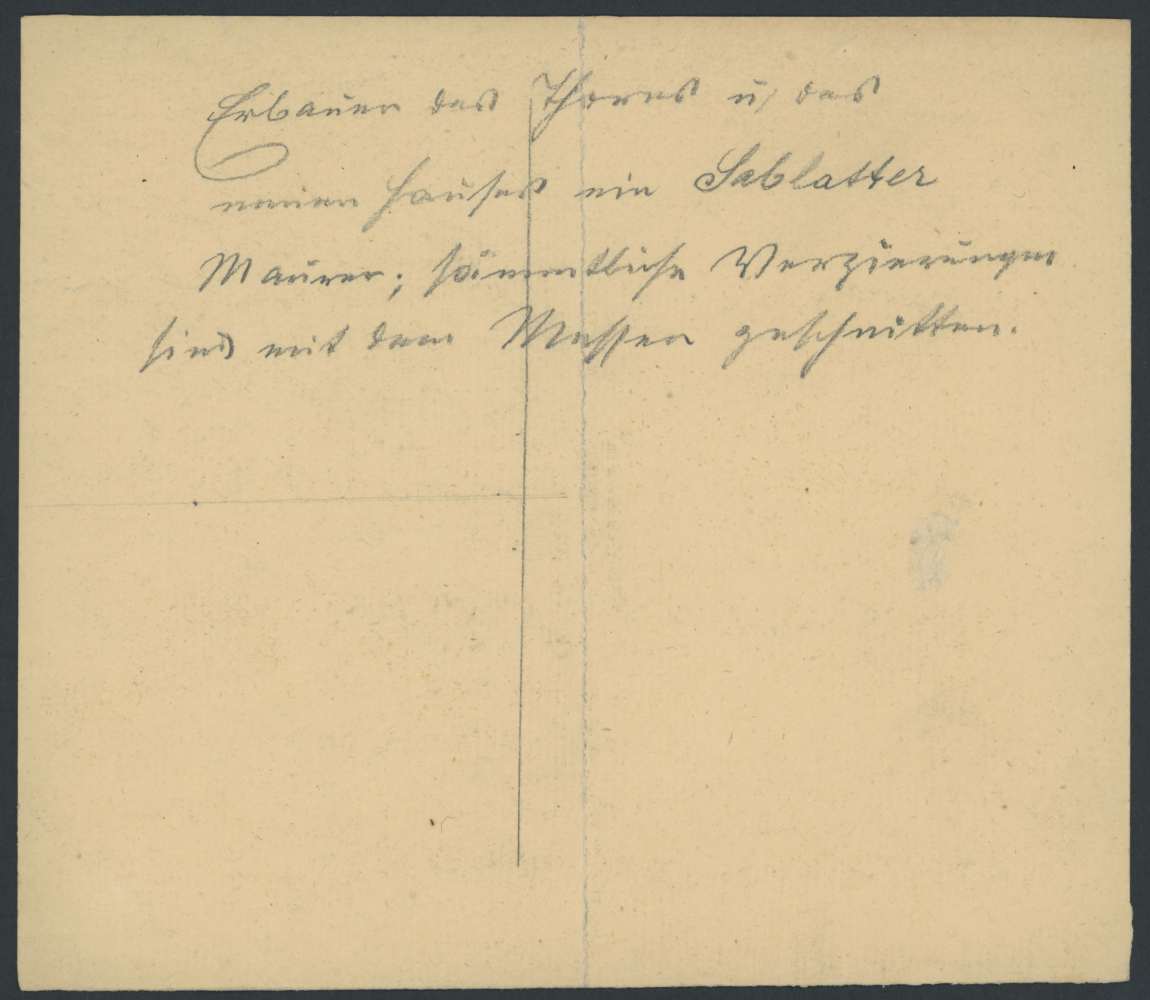 Erbauer des Thores u. des
neuen Hauses ein Sablatter
Maurer; sämmtliche Verzierungen
sind mit dem Messer geschnitten.